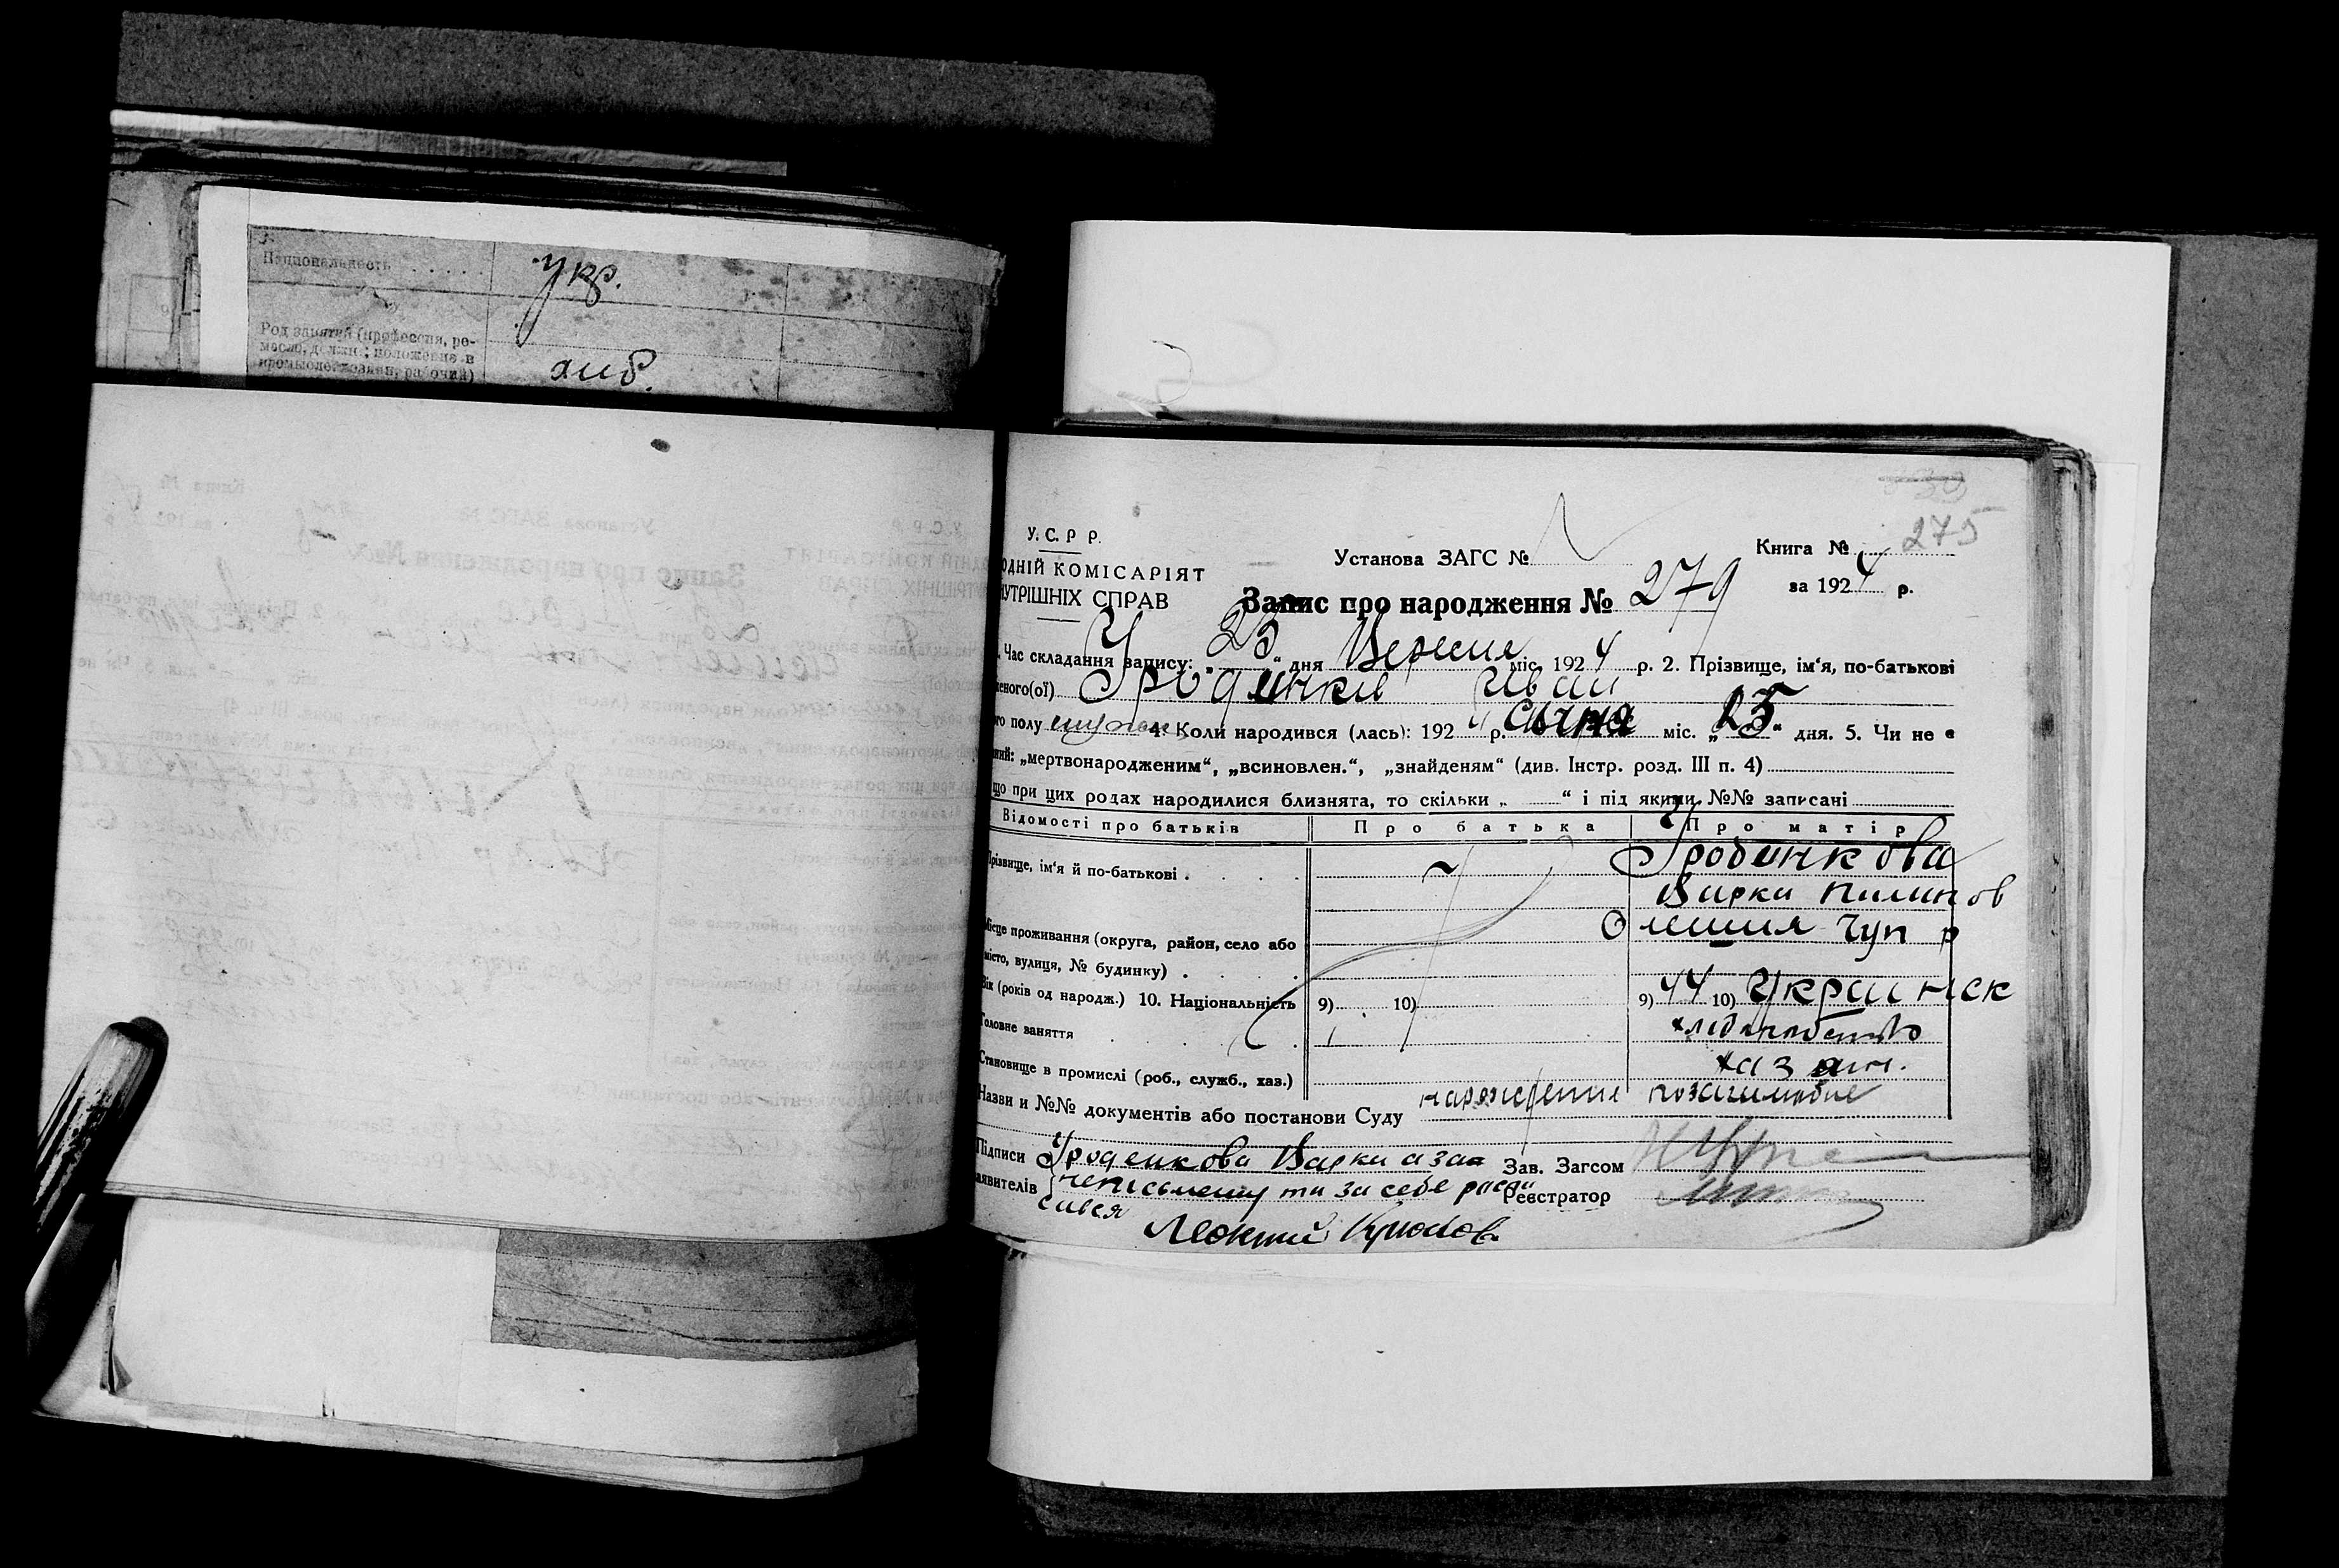 Национальность . . . . . укр.
Род занятий (профессия, ре-
месло, должн; положение в
хлб.
У. С. Р Р.
275
Установа ЗАГС №
Книга №
ОДНІЙ КОМІСАРІЯТ
за 1924 р.
УТРІШНІХ СПРАВ
Запис про народження № 279
Час складання запису: „25“ дня Вересня міс. 1924 р. 2. Прізвище, ім'я, по-батькові
еного(ої) Іван
го полу 4. Коли народився (лась): 1924 р. серпня міс. „25“ дня. 5. Чи не є
ний: „мертвонародженим“, „всиновлен.“, „знайденям“ (див. Інстр. розд. III п. 4)
що при цих родах народилися близнята, то скільки „ “ і під якими №№ записані
Відомості про батьків Про батька Про матір
Прізвище, ім'я й по-батькові . . . . ~ Гроденкова
Варка Пилипов
Місце проживання (округа, район, село або Олешня Чуп р
місто, вулиця, № будинку) . .
Вік (років од народж.) 10. Національність 9) 10) 9) 44 10) Українск
Головне заняття хліборобство
Становище в промислі (роб., служб., хаз.) хазяин.
Назви и №№ документів або постанови Суду народження позашлюбне
Підписи Гроденкова Варки а за Зав. Загсом
заявителів неписьмену та за себе роспи Реєстратор
сився